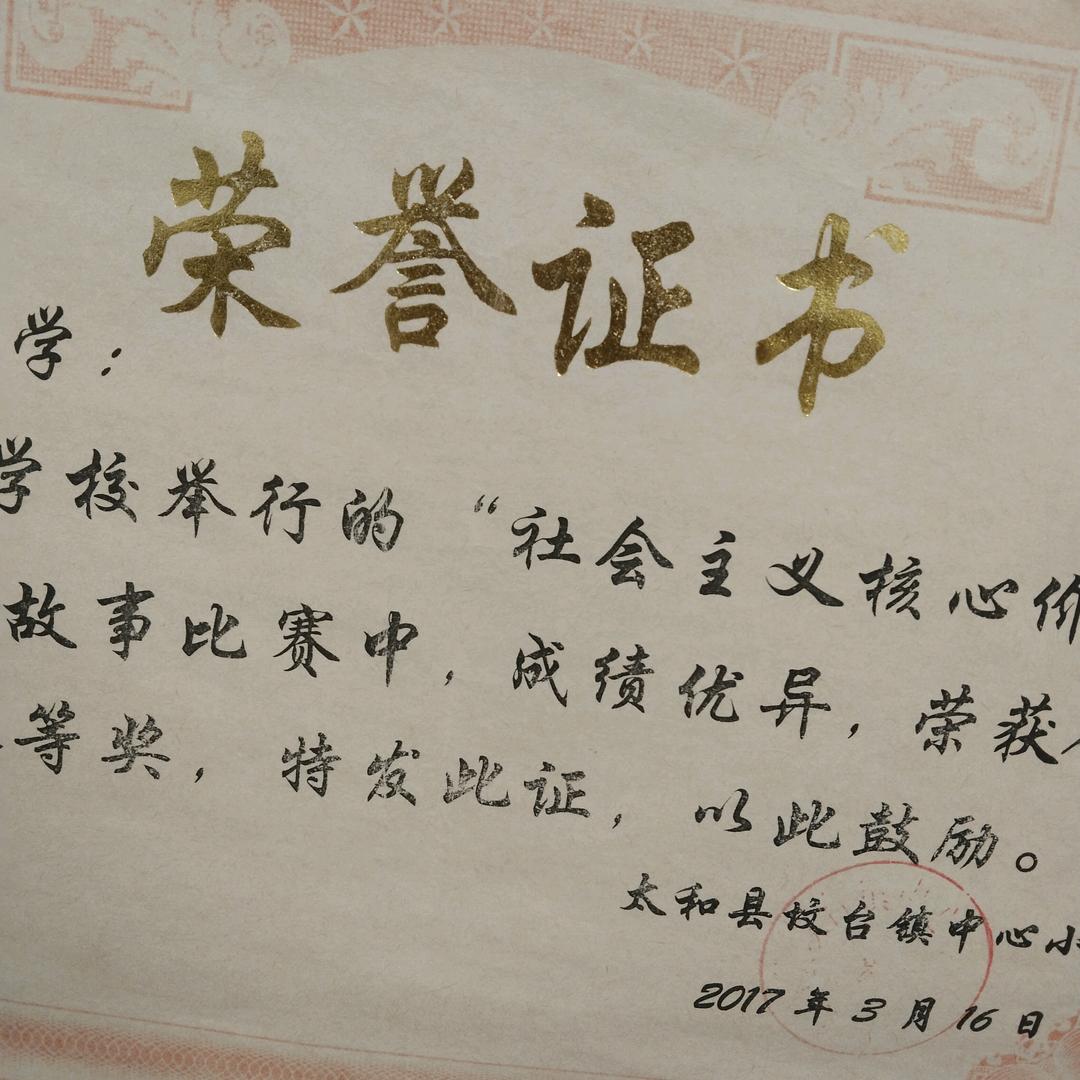 荣誉证书
学：
学校举行的“社会主义核心价
故事比赛中，成绩优异，荣获
等奖，特发此证，以此鼓励。
太和县坟台镇中心小
2017年3月16日